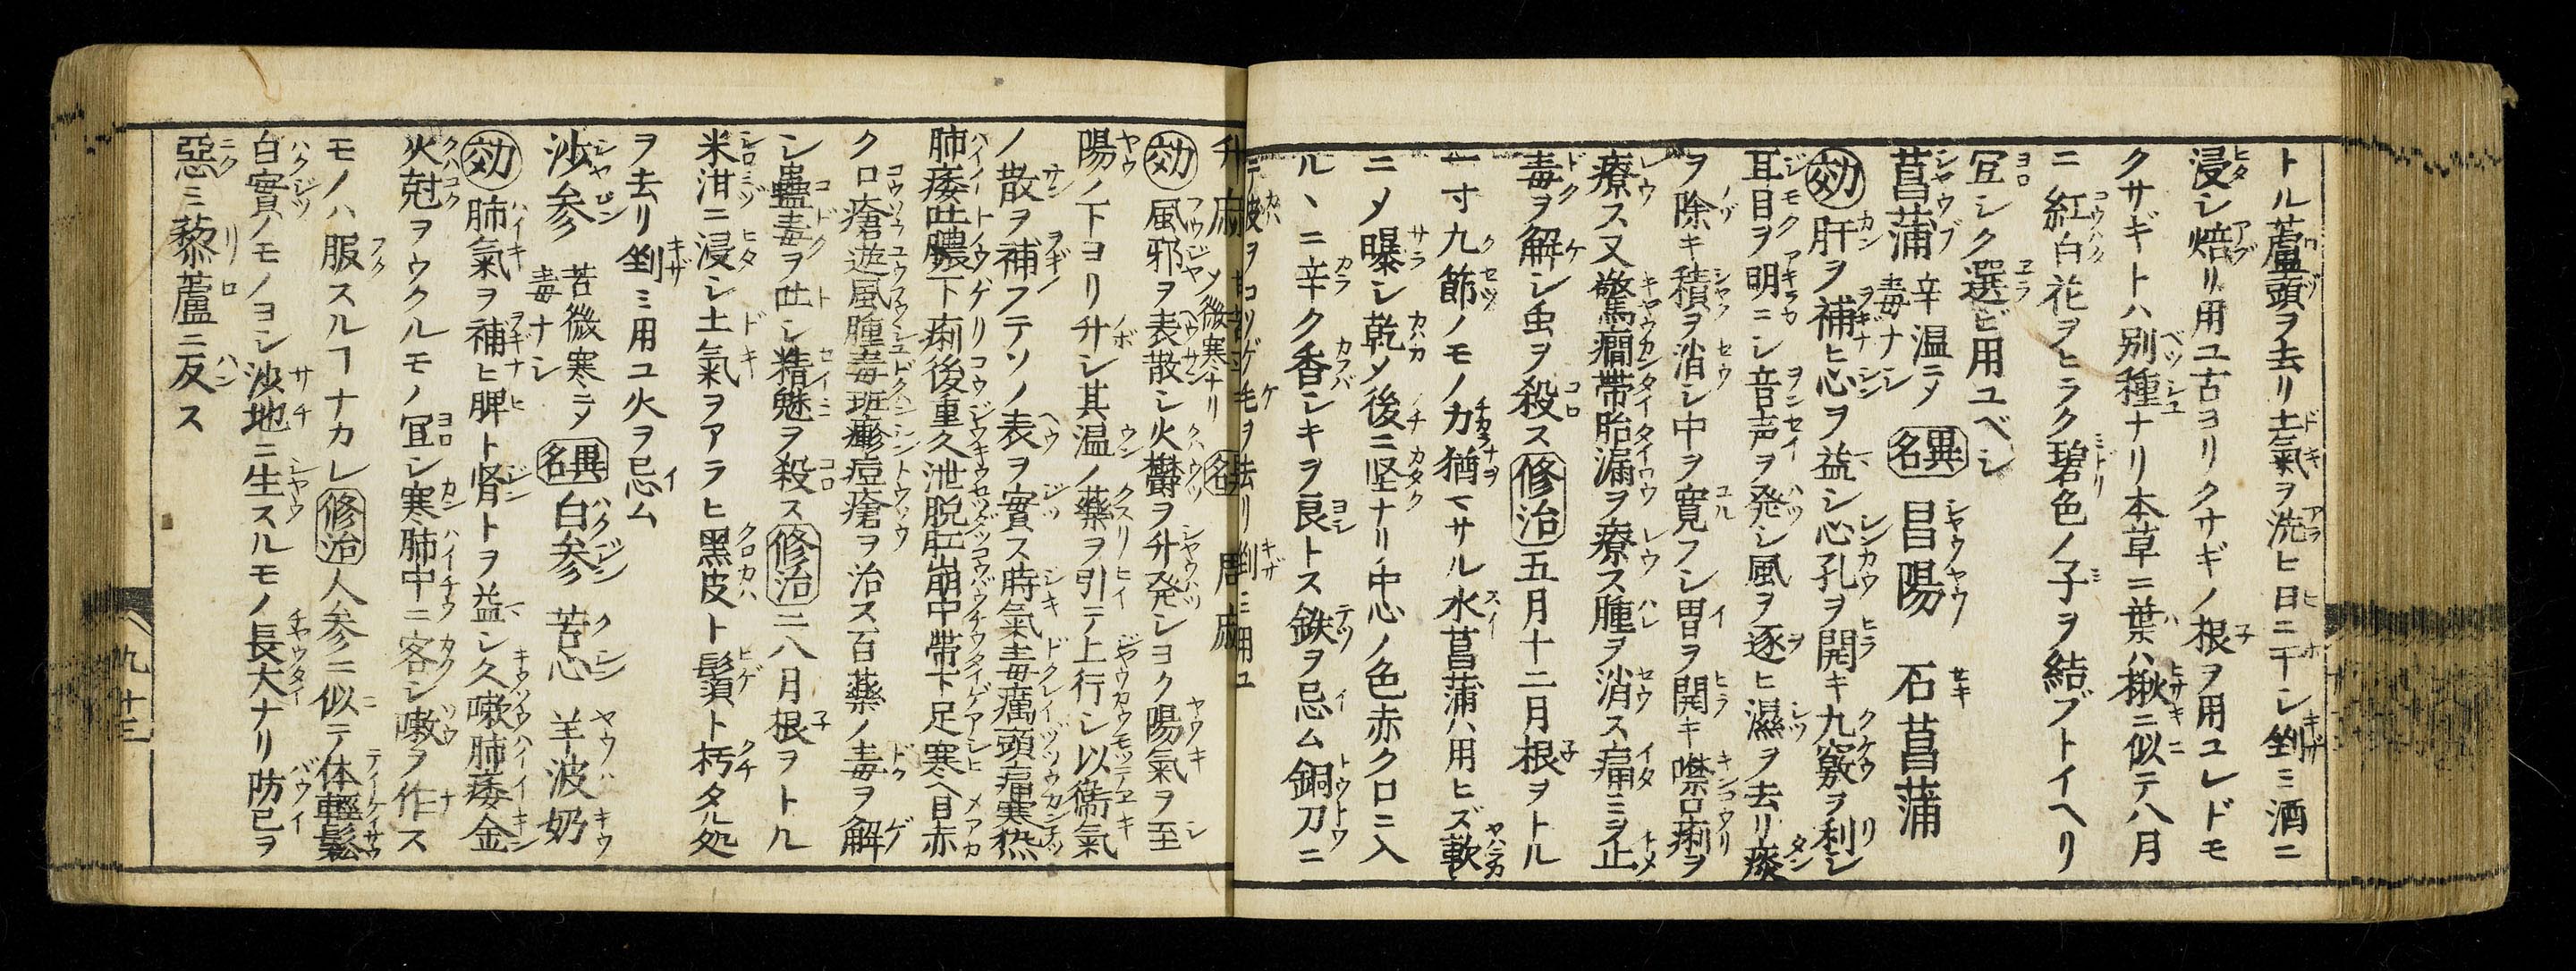 トル蘆頭ヲ去リ土氣ヲ洗ヒ日ニ干シ剉ミ酒ニ
浸シ焙リ用ユ古ヨリクサギノ根ヲ用ユレドモ
クサギトハ別種ナリ本草ニ葉ハ楸ニ似テ八月
ニ紅白花ヲヒラク碧色ノ子ヲ結ブトイヘリ
宜シク選ビ用ユベシ
菖蒲 辛温ニメ毒ナシ 異名 昌陽 石菖蒲
効 肝ヲ補ヒ心ヲ益シ心孔ヲ開キ九竅ヲ利シ
耳目ヲ明ニシ音声ヲ発シ風ヲ逐ヒ濕ヲ去リ痰
ヲ除キ積ヲ消シ中ヲ寛フシ胃ヲ開キ噤口痢ヲ
療ス又驚癇帯胎漏ヲ療ス腫ヲ消ス痛ミヲ止
毒ヲ解シ虫ヲ殺ス 修治 五月十二月根ヲトル
一寸九節ノモノカ猶マサル水菖蒲ハ用ヒズ軟
ニメ曝シ乾メ後ニ堅ナリ中心ノ色赤クロニ入
ル丶ニ辛ク香シキヲ良トス鉄ヲ忌ム銅刀ニ
テ皮ヲコソゲ毛ヲ去リ剉ミ用ユ
升麻 メ微寒ナリ 名 周麻
効 風邪ヲ表散シ火欝ヲ升発シヨク陽氣ヲ至
陽ノ下ヨリ升シ其温ノ藥ヲ引テ上行シ以衞氣
ノ散ヲ補フテソノ表ヲ實ス時氣毒癘頭痛寒熱
肺痿吐膿下痢後重久泄脱肛崩中帶下足寒ヘ目赤
クロ瘡遊風腫毒斑疹痘瘡ヲ治ス百藥ノ毒ヲ解
シ蠱毒ヲ吐シ精魅ヲ殺ス 修治 二八月根ヲトル
米泔ニ浸シ土氣ヲアラヒ黑皮ト鬚ト朽タル処
ヲ去リ剉ミ用ユ火ヲ忌ム
沙参 苦微寒ニテ毒ナシ 異名 白参 苦心 羊波奶
効 肺氣ヲ補ヒ脾ト腎トヲ益シ久嗽肺痿金
火尅ヲウクルモノ宜シ寒肺中ニ客シ嗽ヲ作ス
モノハ服スルヿナカレ 修治 人参ニ似テ体輕鬆
白實ノモノヨシ沙地ニ生スルモノ長大ナリ防已ヲ
惡ミ藜蘆ニ反ス
八九十三